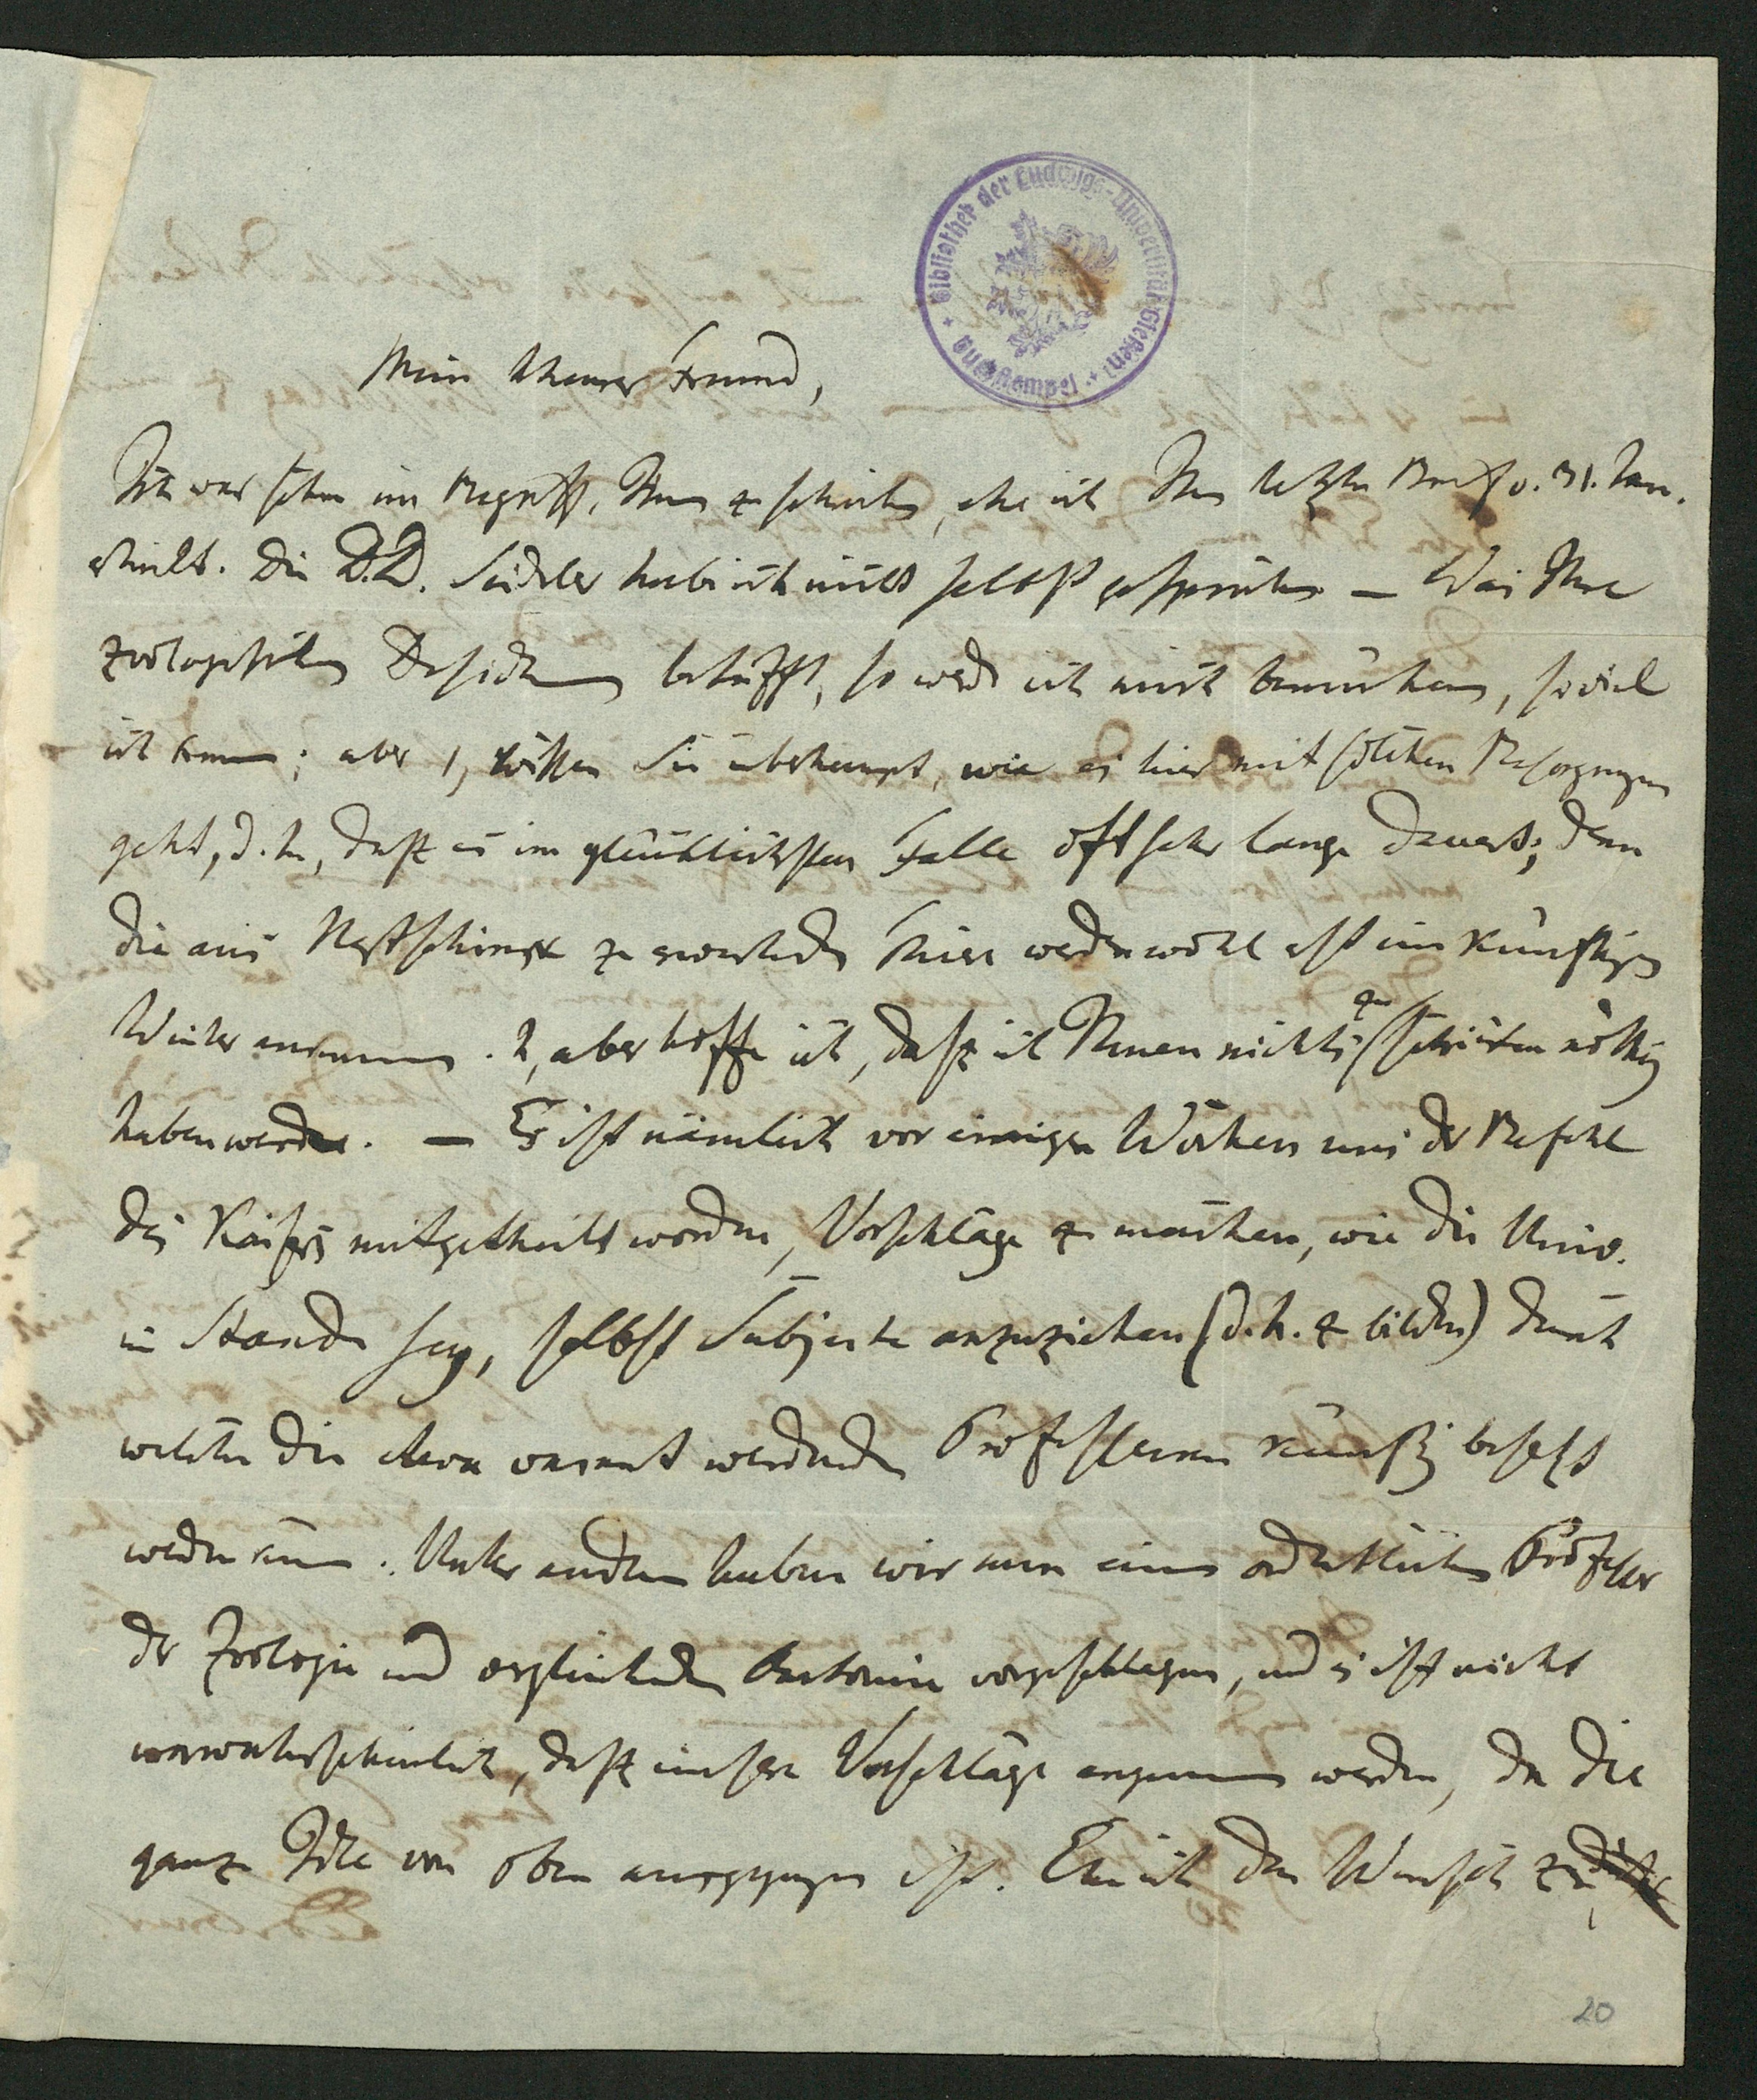 Bibliothek der Ludwigs-Universität Gießen
Mein theurer Freund,
Ich war schon im Begriff, Ihnen zu schreiben, ehe ich Ihren letzten Brief v. 31. Jan.
erhielt. Die D.D. Seidler habe ich nicht selbst gesprochen – Was Ihre
zoologischen Desideria betrifft, so werde ich mich bemühen, soviel
ich kann; aber 1, wissen Sie überhaupt, wie es hier mit solchen Besorgungen
geht, d. h., daß es im glücklichsten Falle oft sehr lange dauert; denn
die aus zu erwartenden werden wohl erst im künftigen
Winter ankommen. 2, aber hoffe ich, daß ich Ihnen nichts zu schicken nöthig
haben werde. – Es ist nämlich vor einigen Wochen uns der Befehl
des Kaisers mitgetheilt worden, Vorschläge zu machen, wie die Univ.
im Stande sey, selbst Subjecte anzuziehen (d. h. zu bilden) durch
welche die etwa vacant werdenden Professuren künftig besetzt
werden können. Unter andern haben wir nun einen ordentlichen Professor
der Zoologie und vergleichenden Anatomie vorgeschlagen, und es ist nicht
unwahrscheinlich, daß unsere Vorschläge angenommen werden, da die
ganze Idee von oben ausgegangen ist. Ehe ich den Wunsch
20